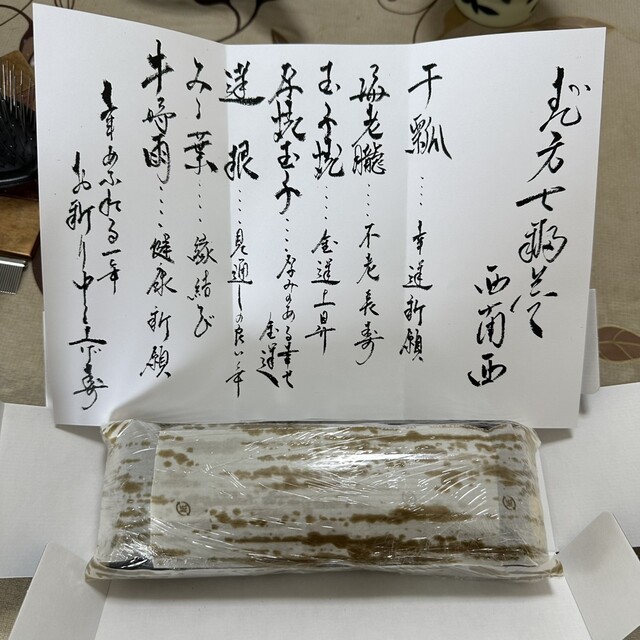 恵方七福巻
西南西
干瓢‥‥幸運祈願
海老朧‥‥不老長寿
玉子焼‥‥金運上昇
厚焼玉子‥‥厚みのある幸せ
金運
蓮根‥‥見通しの良い年
みつ葉‥‥縁結び
牛時雨‥‥健康祈願
幸あふれる一年
お祈り申し上げます